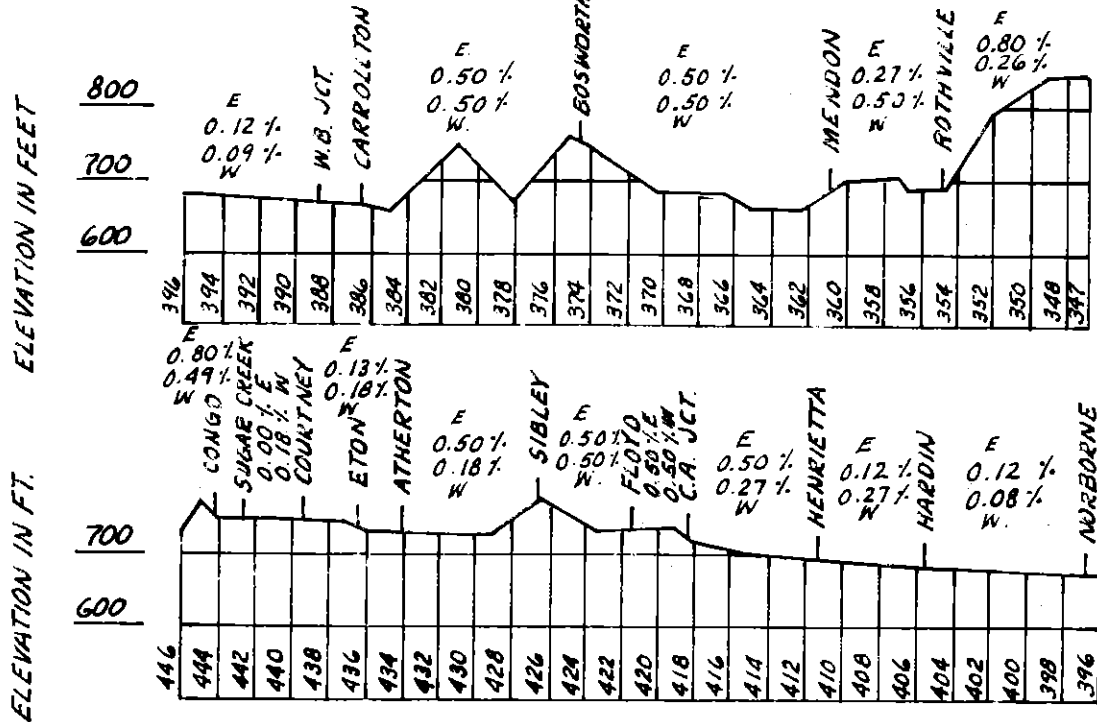 ELEVATION IN FEET
800
700
600
E
0.12 %
0.09 %
W
W.B. JCT.
CARROLLTON
E
0.50 %
0.50 %
W.
BOSWORTH
E
0.50 %
0.50 %
W
MENDON
E
0.27 %
0.50 %
W
ROTHVILLE
E
0.80 %
0.26 %
W
396 394 392 390 388 386 384 382 380 378 376 374 372 370 368 366 364 362 360 358 356 354 352 350 348 347
ELEVATION IN FT.
700
600
E
0.80 %
0.49 %
W
CONGO
SUGAR CREEK
0.00 % E
0.18 % W
COURTNEY
E
0.13 %
0.18 %
W
ETON
ATHERTON
E
0.50 %
0.18 %
W
SIBLEY
E
0.50 %
0.50 %
W.
FLOYD
0.50 % E
0.50 % W
C.A. JCT.
E
0.50 %
0.27 %
W
HENRIETTA
E
0.12 %
0.27 %
W
HARDIN
E
0.12 %
0.08 %
W.
NORBORNE
446 444 442 440 438 436 434 432 430 428 426 424 422 420 418 416 414 412 410 408 406 404 402 400 398 396